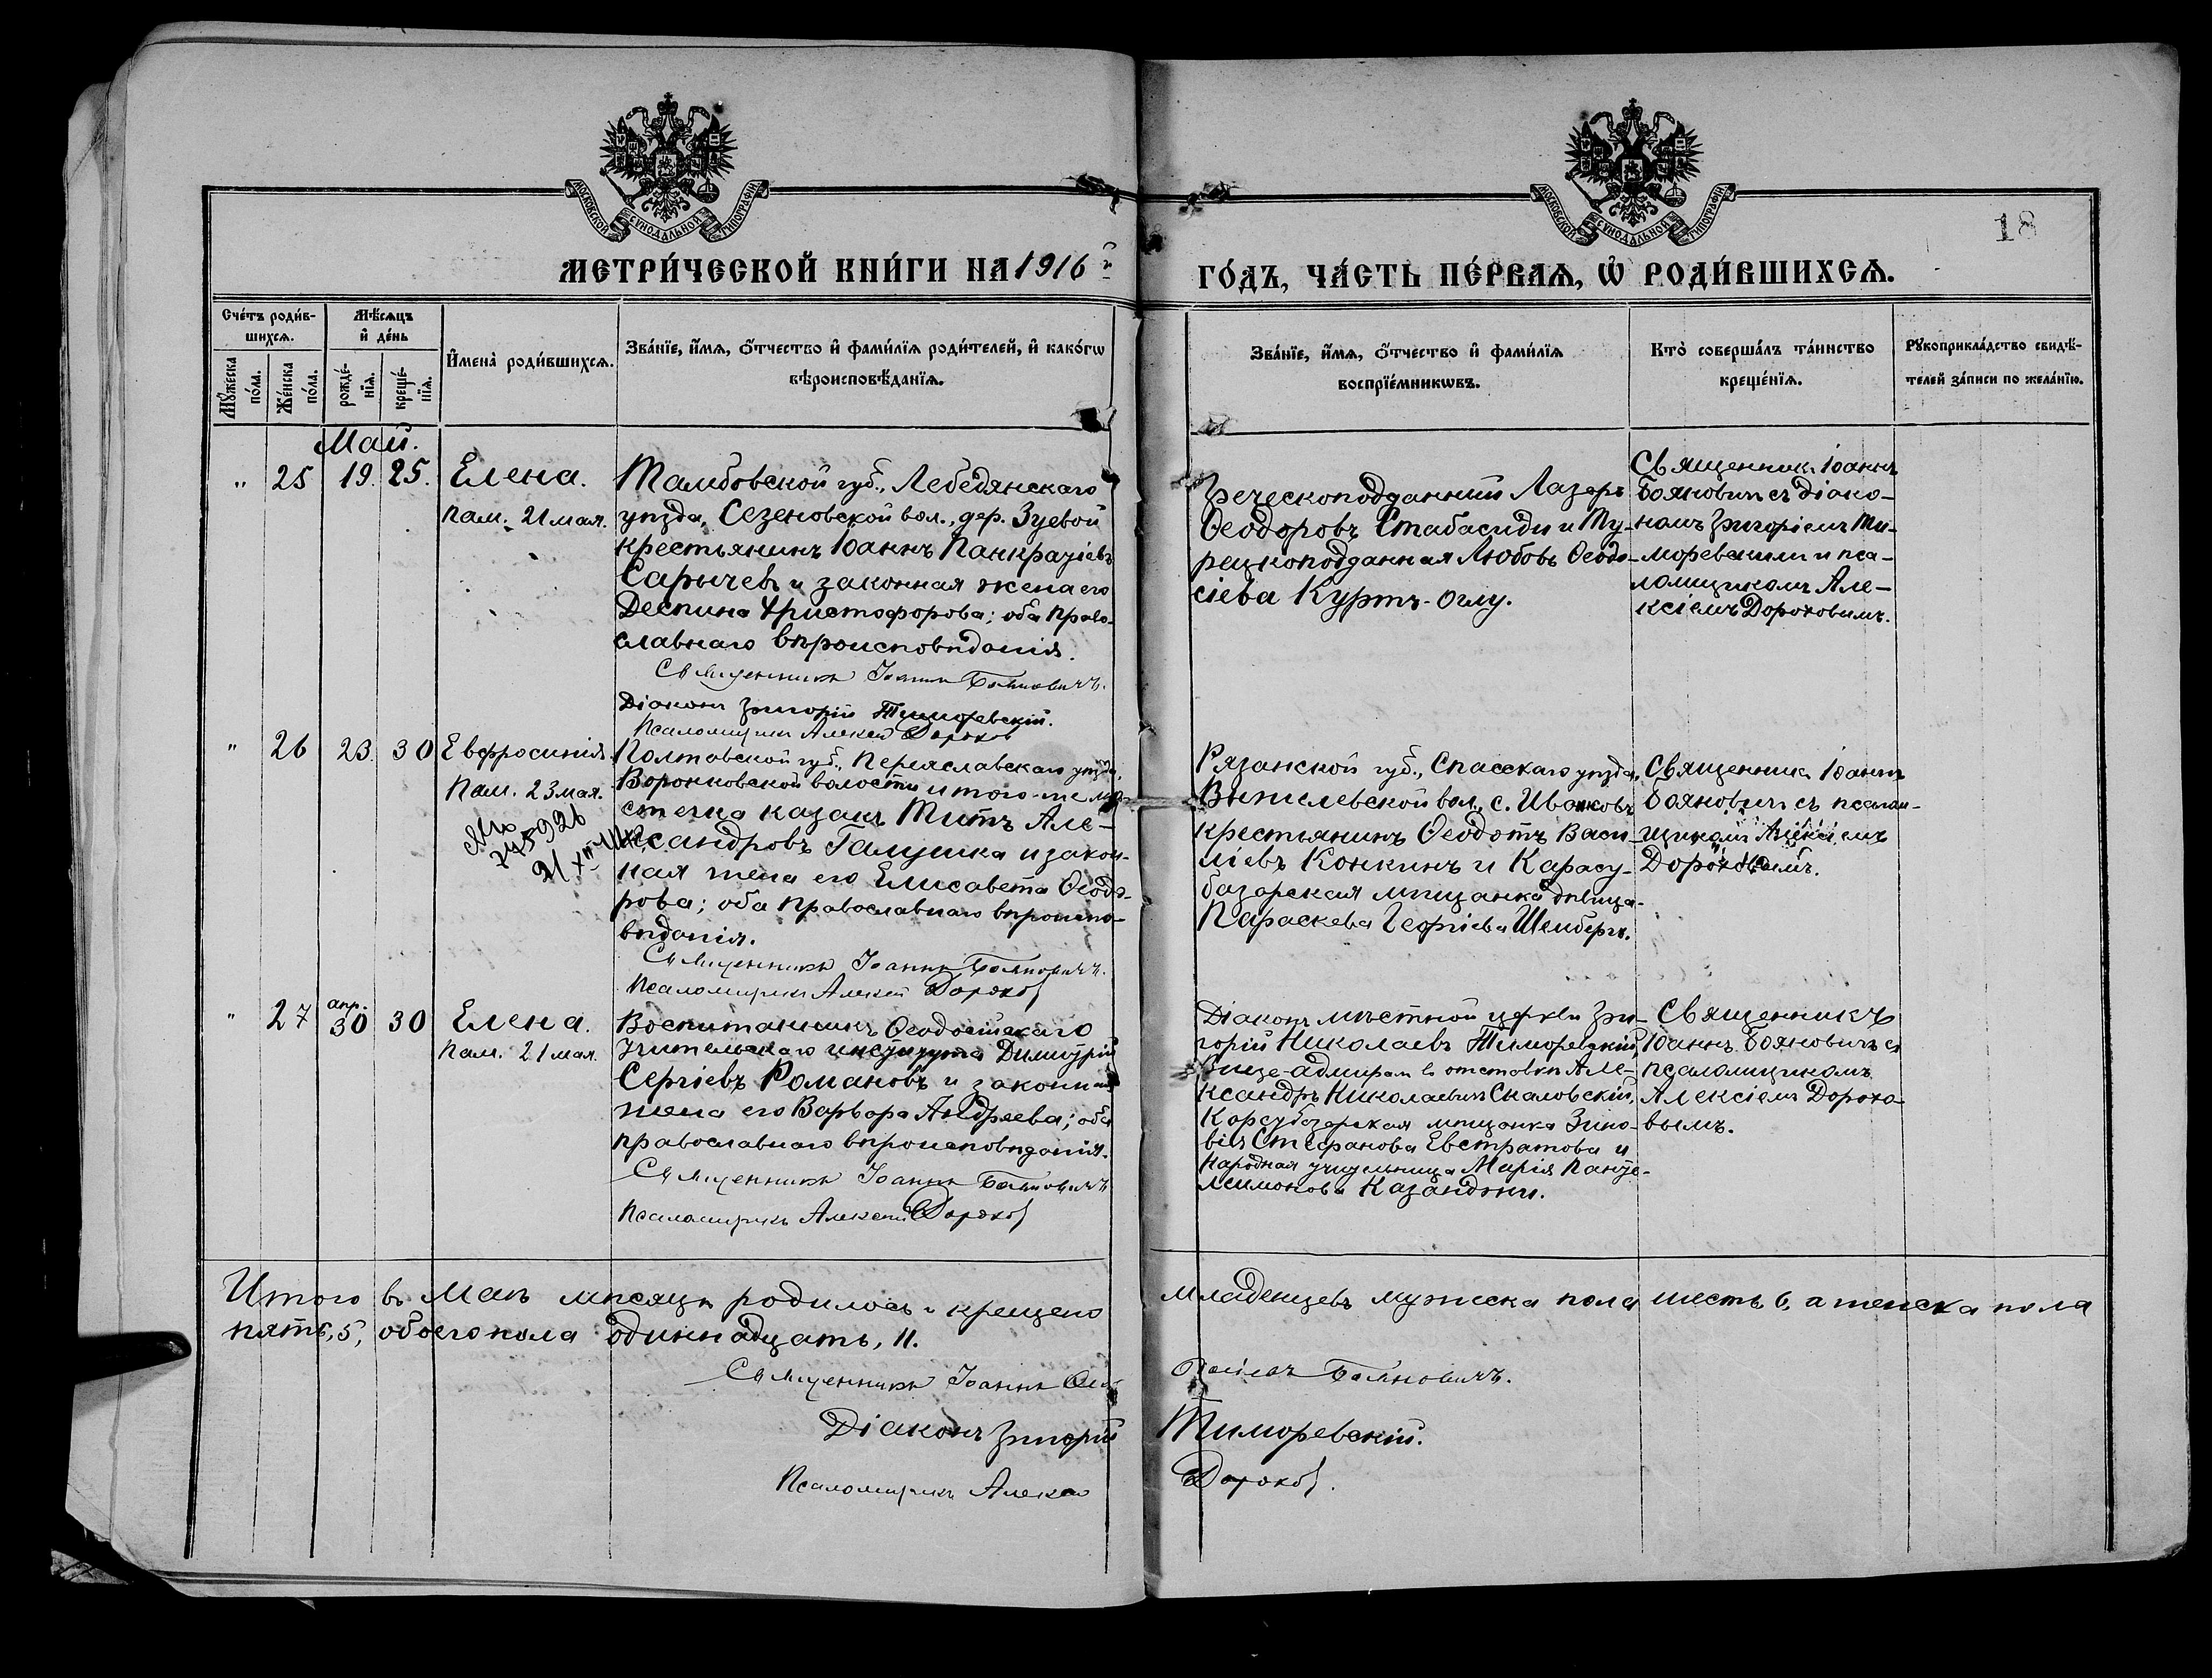 МОСКОВСКОЙ СѴНОДАЛЬНОЙ ТИПОГРАФІИ
МОСКОВСКОЙ СѴНОДАЛЬНОЙ ТИПОГРАФІИ
18
МЕТРИ́ЧЕСКОЙ КНИ́ГИ НА 1916 й
ГО́ДЪ, ЧА́СТЬ ПЕ́РВАѦ, Ѡ҆ РОДИ́ВШИХСѦ.
Сче́тъ роди́в-
шихсѧ.
Мꙋ́жеска по́ла.
Же́нска по́ла.
Мѣ́сѧцъ
и҆ де́нь
рожде́-
нїѧ.
креще́-
нїѧ.
И҆мена̀ роди́вшихсѧ.
Зва́нїе, и҆́мѧ, ѻ҆́тчество и҆ фами́лїѧ роди́телей, и҆ како́гѡ
вѣроисповѣ́данїѧ.
Зва́нїе, и҆́мѧ, ѻ҆́тчество и҆ фами́лїѧ
воспрїе́мникѡвъ.
Кто̀ соверша́лъ та́инство
креще́нїѧ.
Рꙋкоприкла́дство свидѣ́-
телей за́писи по жела́нїю.
Май.
" 25 19. 25. Елена.
пам. 21 мая.
Тамбовской губ., Лебедянскаго
уѣзда, Сезеновской вол., дер. Зуевой
крестьянинъ Іоаннъ Панкратіевъ
Сарычевъ и законная жена его
Деспина Христофорова; оба право-
славнаго вѣроисповѣданія.
Священникъ Іоаннъ Бояновичъ.
Діаконъ Григорій Тиморевскій.
Псаломщикъ Алексей Дорохов
Греческоподданный Лазарь
Ѳеодоровъ Стабасиди и Ту-
рецкоподданная Любовь Ѳеодо-
сіева Куртъ-Оглу.
Священникъ Іоаннъ
Бояновичъ съ діако-
номъ Григоріемъ Ти-
моревскимъ и пса-
ломщикомъ Але-
ксіемъ Дороховымъ.
" 26 23. 30 Евфросинія.
Пам. 23 мая.
745926
21/XII
Полтавской губ., Переяславскаго уѣзда,
Воронковской волости и того-же мѣ-
стечка казакъ Титъ Але-
ксандровъ Галушка и закон-
ная жена его Елисавета Ѳеодо-
рова; оба православнаго вѣроиспо-
вѣданія.
Священникъ Іоаннъ Бояновичъ.
Псаломщикъ Алексей Дорохов
Рязанской губ., Спасскаго уѣзда,
Выжелевской вол., с. Ивонковъ
крестьянинъ Ѳеодотъ Васи-
ліевъ Конкинъ и Карасу-
базарская мѣщанка дѣвица
Параскева Георгіева Шембергъ.
Священникъ Іоаннъ
Бояновичъ съ псалом-
щикомъ Алексіемъ
Дороховымъ.
" 27 апр. 30 30 Елена.
пам. 21 мая.
Воспитанникъ Ѳеодосійскаго
Учительскаго института Димитрій
Сергіевъ Романовъ и законная
жена его Варвара Андреева; оба
православнаго вѣроисповѣданія.
Священникъ Іоаннъ Бояновичъ
Псаломщикъ Алексей Дорохов
Діаконъ мѣстной церкви Гри-
горій Николаевъ Тиморевскій,
Вице-адмиралъ въ отставкѣ Але-
ксандръ Николаевичъ Скаловскій,
Карасубазарская мѣщанка Зино-
вія Стефанова Евстратова и
народная учительница Марія Панте-
леимонова Казанджи.
Священникъ
Іоаннъ Бояновичъ съ
псаломщикомъ
Алексіемъ Дорохо-
вымъ.
Итого въ Маѣ мѣсяцѣ родилось и крещено младенцевъ мужеска пола шесть, 6, а женска пола
пять, 5, обоего пола одиннадцать, 11.
Священникъ Іоаннъ Бояновичъ.
Діаконъ Григорій Тиморевскій.
Псаломщикъ Алексей Дорохов.